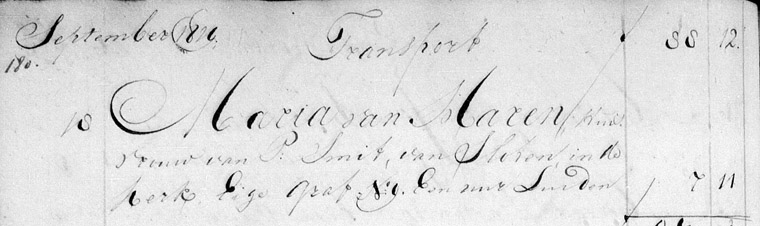 September 1810. Transport ƒ 88 12.
180.
18 Maria van Maren,
vrouw van P. Smit, van Sloten, in de
kerk Eige graf N: 9. Een uur Luiden ƒ 7 11